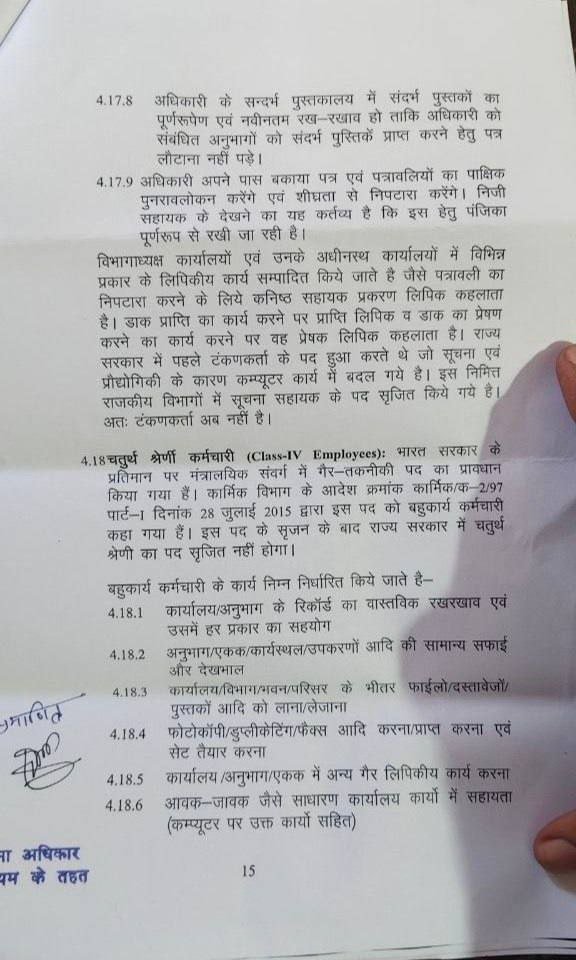 4.17.8 अधिकारी के सन्दर्भ पुस्तकालय में संदर्भ पुस्तकों का
पूर्णरूपेण एवं नवीनतम रख–रखाव हो ताकि अधिकारी को
संबंधित अनुभागों को संदर्भ पुस्तिकें प्राप्त करने हेतु पत्र
लौटाना नहीं पड़े।
4.17.9 अधिकारी अपने पास बकाया पत्र एवं पत्रावलियों का पाक्षिक
पुनरावलोकन करेंगे एवं शीघ्रता से निपटारा करेंगे। निजी
सहायक के देखने का यह कर्तव्य है कि इस हेतु पंजिका
पूर्णरूप से रखी जा रही है।
विभागाध्यक्ष कार्यालयों एवं उनके अधीनस्थ कार्यालयों में विभिन्न
प्रकार के लिपिकीय कार्य सम्पादित किये जाते है जैसे पत्रावली का
निपटारा करने के लिये कनिष्ठ सहायक प्रकरण लिपिक कहलाता
है। डाक प्राप्ति का कार्य करने पर प्राप्ति लिपिक व डाक का प्रेषण
करने का कार्य करने पर वह प्रेषक लिपिक कहलाता है। राज्य
सरकार में पहले टंकणकर्ता के पद हुआ करते थे जो सूचना एवं
प्रौद्योगिकी के कारण कम्प्यूटर कार्य में बदल गये है। इस निमित्त
राजकीय विभागों में सूचना सहायक के पद सृजित किये गये है।
अतः टंकणकर्ता अब नहीं है।
4.18 चतुर्थ श्रेणी कर्मचारी (Class-IV Employees): भारत सरकार के
प्रतिमान पर मंत्रालयिक संवर्ग में गैर–तकनीकी पद का प्रावधान
किया गया हैं। कार्मिक विभाग के आदेश क्रमांक कार्मिक/क–2/97
पार्ट–I दिनांक 28 जुलाई 2015 द्वारा इस पद को बहुकार्य कर्मचारी
कहा गया हैं। इस पद के सृजन के बाद राज्य सरकार में चतुर्थ
श्रेणी का पद सृजित नहीं होगा।
बहुकार्य कर्मचारी के कार्य निम्न निर्धारित किये जाते है–
4.18.1 कार्यालय/अनुभाग के रिकॉर्ड का वास्तविक रखरखाव एवं
उसमें हर प्रकार का सहयोग
4.18.2 अनुभाग/एकक/कार्यस्थल/उपकरणों आदि की सामान्य सफाई
और देखभाल
4.18.3 कार्यालय/विभाग/भवन/परिसर के भीतर फाईलो/दस्तावेजों/
पुस्तकों आदि को लाना/लेजाना
4.18.4 फोटोकॉपी/डुप्लीकेटिंग/फैक्स आदि करना/प्राप्त करना एवं
सेट तैयार करना
4.18.5 कार्यालय/अनुभाग/एकक में अन्य गैर लिपिकीय कार्य करना
4.18.6 आवक–जावक जैसे साधारण कार्यालय कार्यो में सहायता
(कम्प्यूटर पर उक्त कार्यो सहित)
अधिकार
के तहत
15